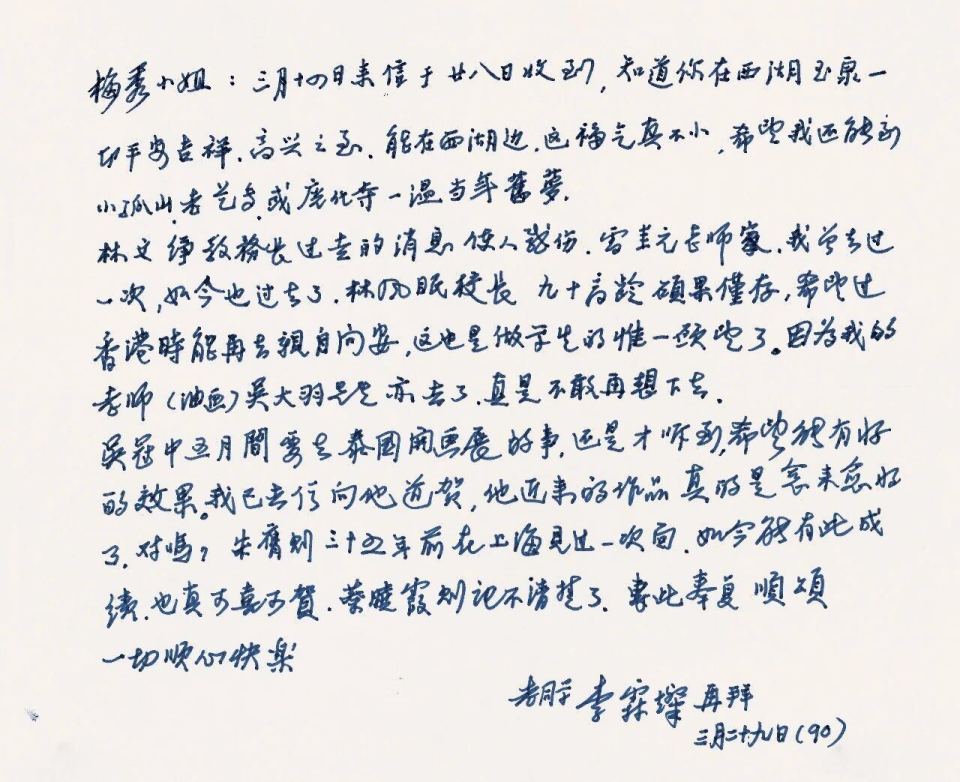 梅秀小姐：三月十四日来信于廿八日收到，知道你在西湖玉泉一
切平安吉祥，高兴之至，能在西湖边，这福气真不小，希望我还能到
小孤山，老艺专，或广化寺一温当年舊夢。
林文铮教務长过去的消息使人感伤，雷圭元老师家，我曾去过
一次，如今也过去了，林风眠校长九十高龄碩果僅存，希望过
香港時能再去親自问安，这也是做学生的惟一願望了。因为我的
老师（油画）吴大羽先生亦去了，真是不敢再想下去。
吴冠中五月間要去泰國開画展的事，还是才听到，希望能有好
的效果。我已去信向他道贺，他近来的作品真的是愈来愈好
了，对嗎？朱膺则三十五年前在上海見过一次面，如今能有此成
績，也真可喜可賀，蔡 霞则记不清楚了，專此奉复 順頌
一切顺心快樂
老同学 李霖燦 再拜
三月二十九日（90）